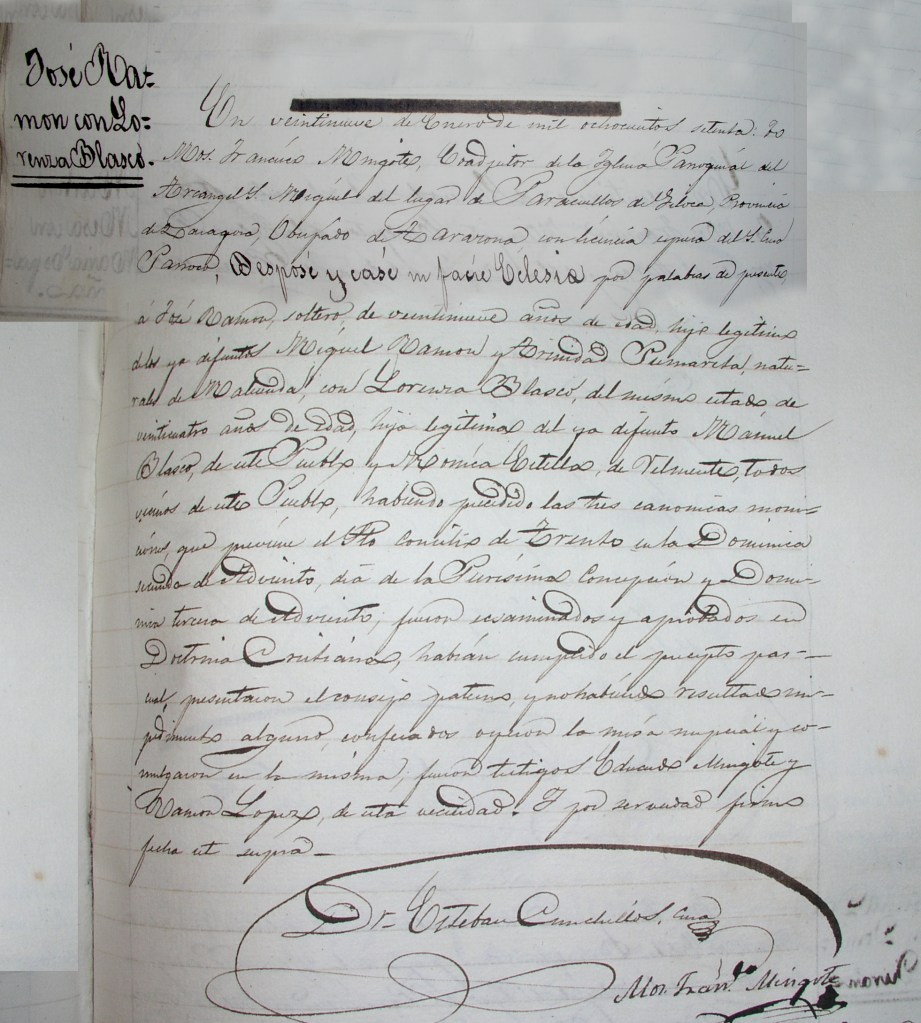 José Ra=
mon con Lo=
renza Blasco.
En veintinueve de Enero de mil ochocientos setenta. Yo
Mos. Francisco Mingote, Coadjutor de la Iglesia Parroquial del
Arcangel S. Miguel del lugar de Paracuellos de Jiloca, Provincia
de Zaragoza, Obispado de Tarazona, con licencia espresa del S. Cura
Parroco, Desposé y casé in facie Eclesia por palabras de presente,
á José Ramon, soltero, de veintinueve años de edad, hijo legitimo
de los ya difuntos Miguel Ramon y Trinidad natu-
rales de Maluenda, con Lorenza Blasco, del mismo estado de
veinticuatro años de edad, hija legitima del ya difunto Manuel
Blasco, de este Pueblo y Monica Estella, de Velmonte, todos
vecinos de este Pueblo, habiendo precedido las tres canonicas moni-
ciones, que previene el Sto Concilio de Trento en la Dominica
segunda de Adviento, dia de la Purisima Concepcion y Domi-
nica tercera de Adviento; fueron ecsaminados y aprobados en
Doctrina Cristiana, habian cumplido el precepto pas-
cual, presentaron el consejo paterno, y no habiendo resultado im-
pedimento alguno, confesados oyeron la misa nupcial y co-
mulgaron en la misma; fueron testigos Eduardo Mingote y
Ramon Lopez, de esta vecindad. Y por ser verdad firmo
fecha ut supra_
Dr. Esteban Cunchillos, Cura
Mos. Fran.co Mingote